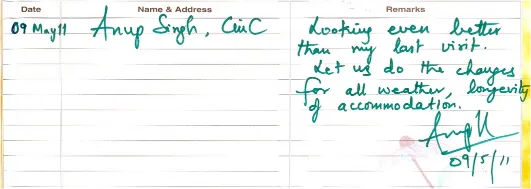 Date Name & Address Remarks
09 May 11 Anup Singh, CinC Looking even better
than my last visit.
Let us do the changes
for all weather, longevity
of accommodation.
09/5/11